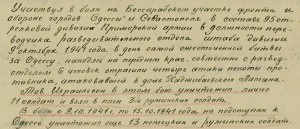 Участвуя в боях на Бессарабском участке фронта и
обороне городов Одессы и Севастополя в составе 95 ст-
релковой дивизии Приморской армии в должности пере-
водчика разведывательного отдела штаба дивизии
9 октября 1941 года в день самой ожесточенной битвы
за Одессу, находясь на переднем крае, совместно с развед-
отделом в течение отразили четыре атаки пехоты про-
тивника, атаковавшей в дачи Хаджибейского Лимана.
Тов. Израильсон в этом бою уничтожил лично
11 солдат и взял в плен румынских солдат.
В боях с 9.10.1941 г. по 15.10.1941 года, на подступах к
Одессе уничтожил еще 13 немецких и румынских солдат.